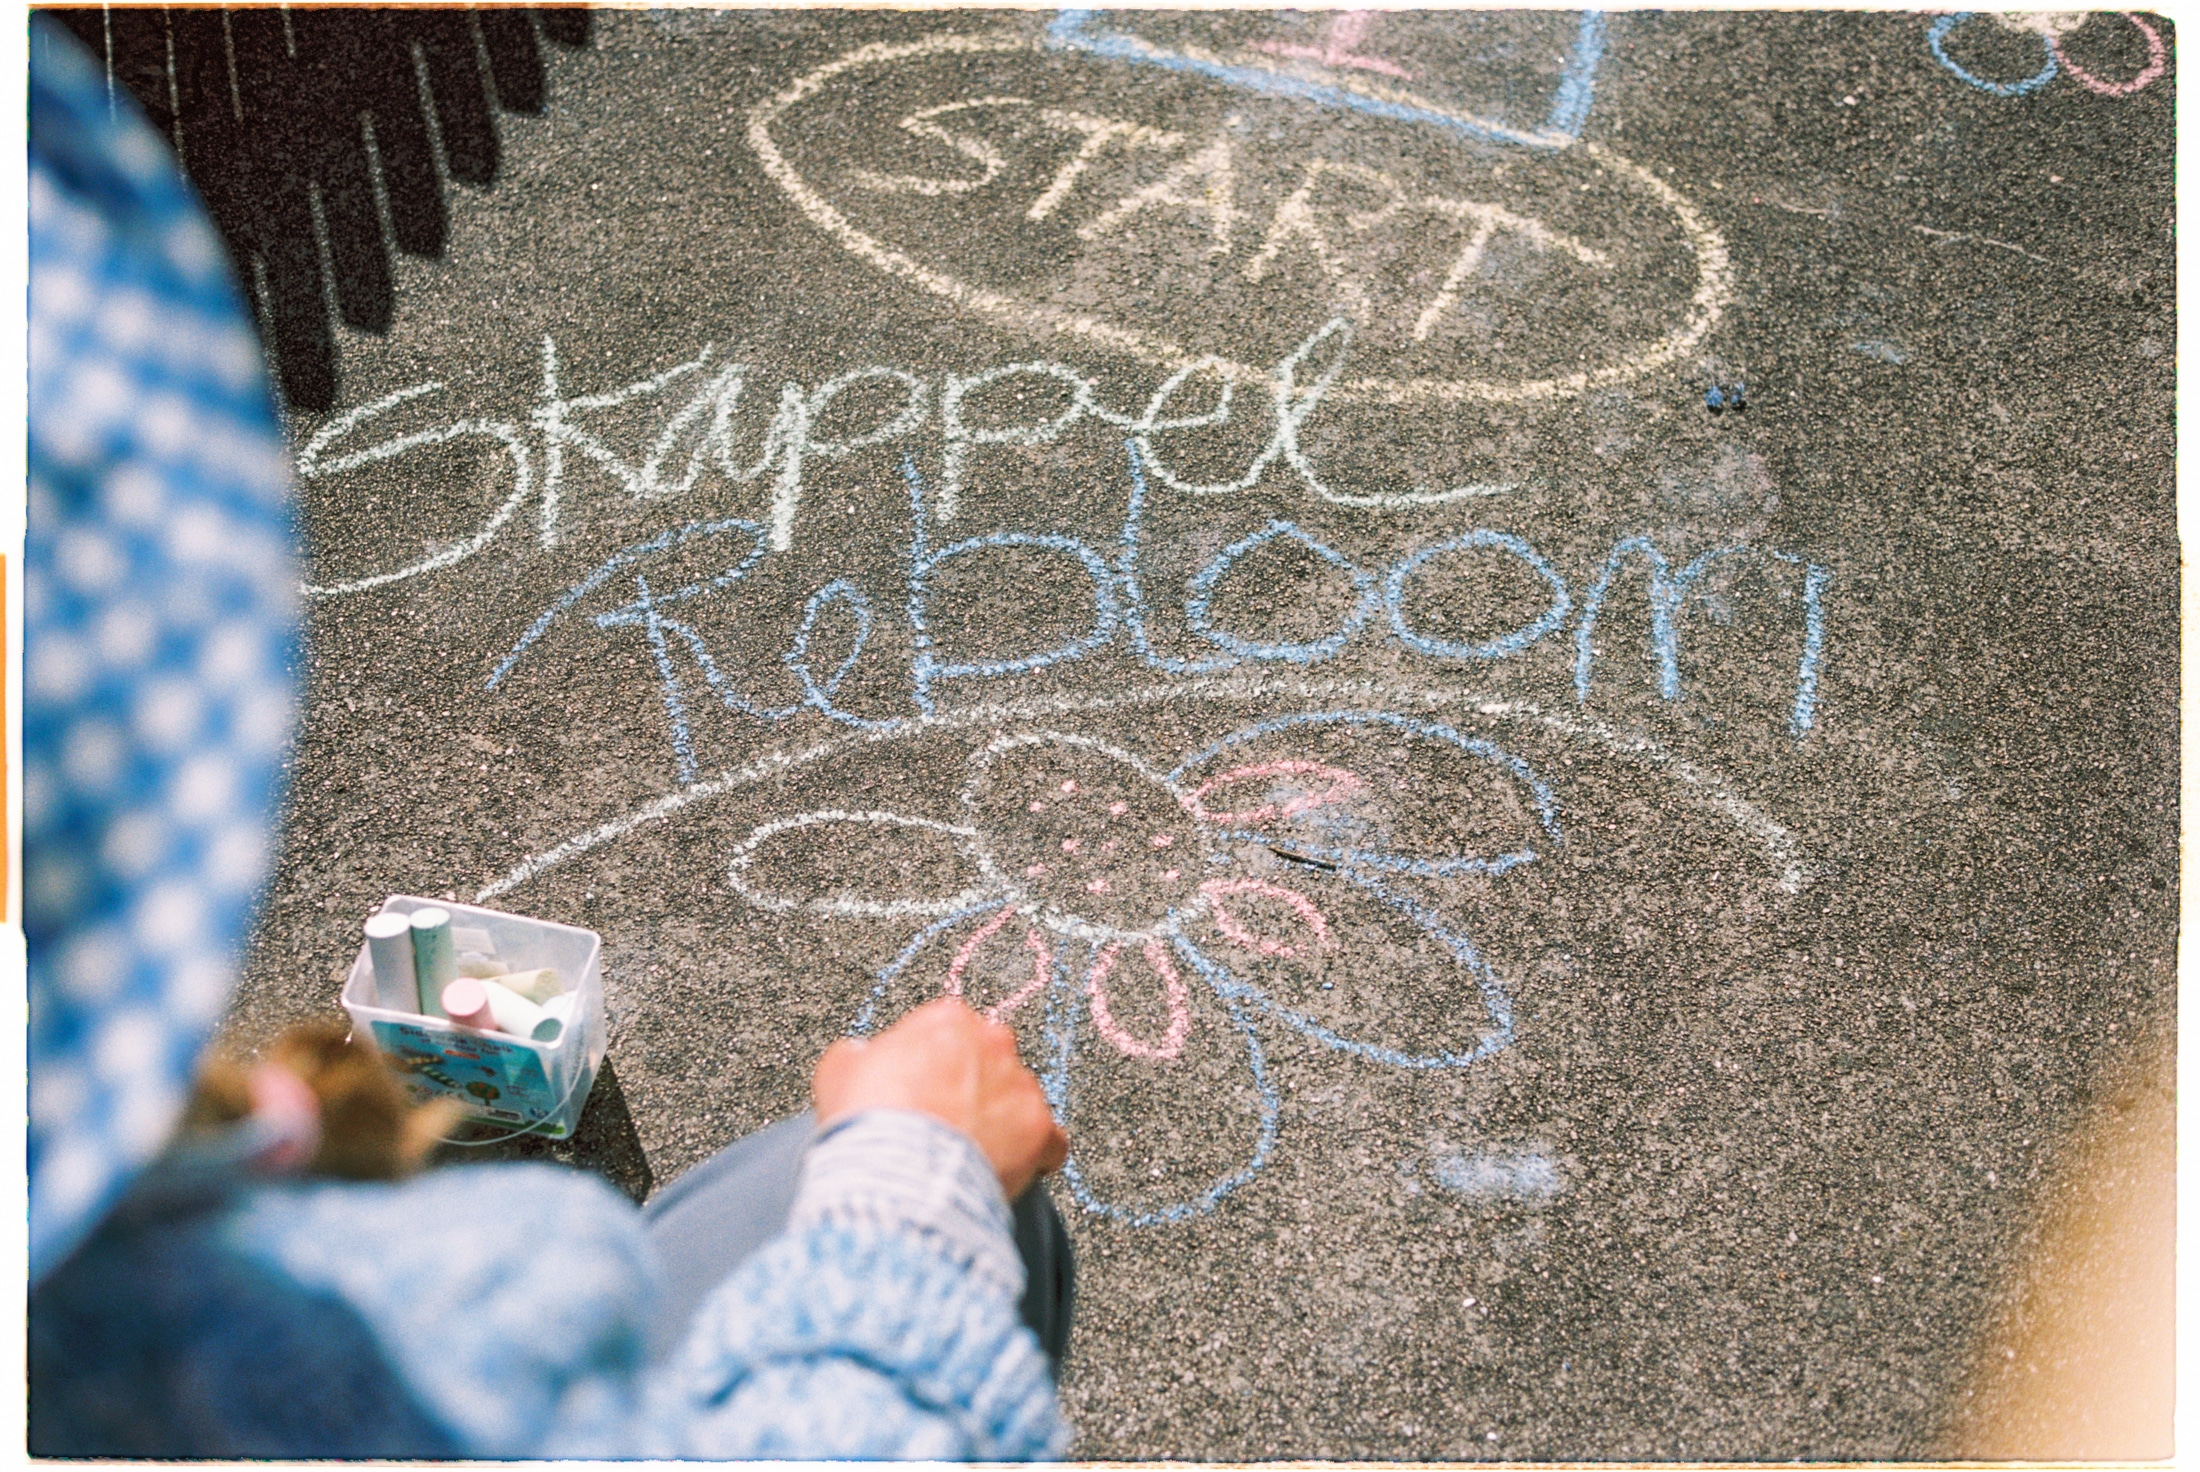 START
Skappel
Rebloom